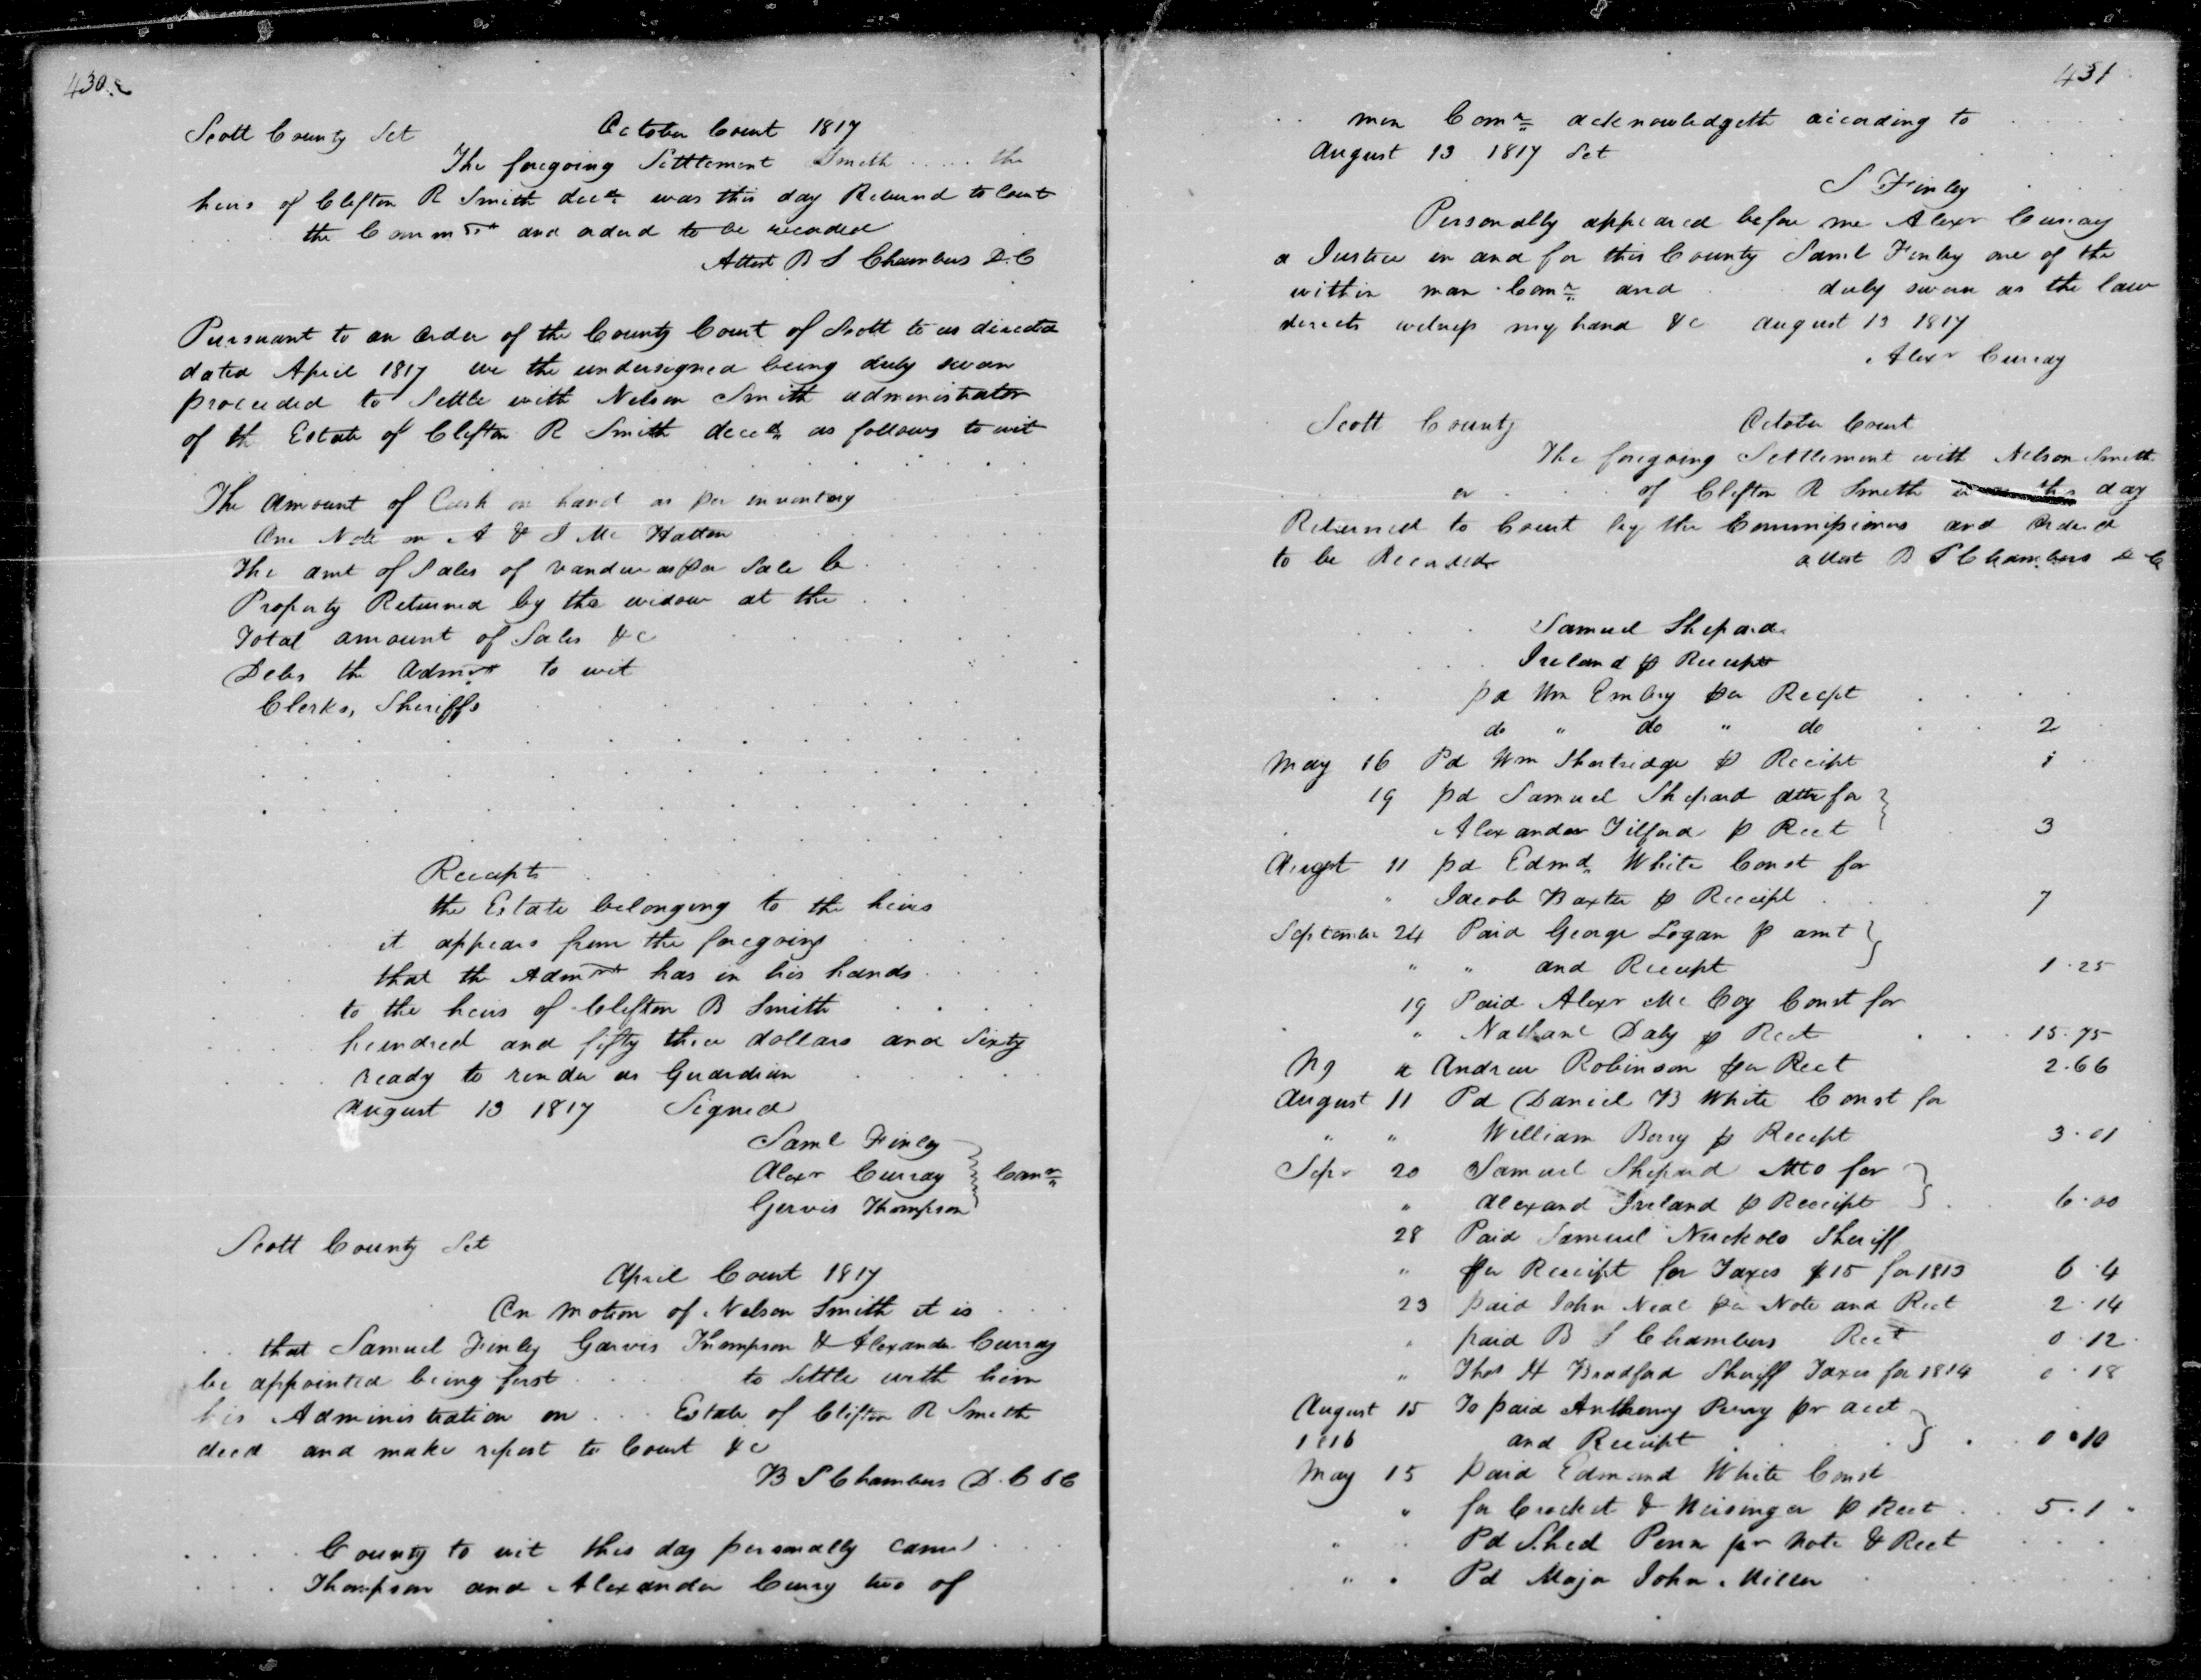 430
Scott County Sct October Court 1817
The foregoing Settlement Smith ..... the
heirs of Clifton R Smith decd was this day Returnd to Court
the Commrs and ordered to be recorded
Attest B S Chambers D.C
Pursuant to an order of the County Court of Scott to us directed
dated April 1817 we the undersigned being duly sworn
proceeded to Settle with Nelson Smith administrator
of th Estate of Clifton R Smith decd as follows to wit
The amount of Cash on hand as per inventory
One Note on A & J Mc Hatton
The amt of Sales of vandue as per Sale b
Property Returned by the widow at the
Total amount of Sales &c
Debts the Admrt to wit
Clerks, Sheriffs
Receipts
the Estate belonging to the heirs
it appears from the foregoing
that the Admrt has in his hands
to the heirs of Clifton B Smith
hundred and fifty three dollars and Sixty
ready to render as Guardian
August 13 1817 Signed
Saml Finley
Alexr Curray } Comrs
Gervis Thompson
Scott County Sct
April Court 1817
On motion of Nelson Smith it is
that Samuel Finley Garvis Thompson & Alexander Curray
be appointed being first to Settle with him
his Administration on Estate of Clifton R Smith
decd and make report to Court &c
B S Chambers D.C S C
County to wit this day personally came
Thompson and Alexander Curry two of
431
men Comrs acknowledgeth according to
August 13 1817 Sct
S Finley
Personally appeared before me Alexr Curray
a Justice in and for this County Saml Finley one of the
within man Comrs and duly sworn as the law
directs witness my hand &c August 13 1817
Alexr Curray
Scott County October Court
The foregoing Settlement with Nelson Smith
or of Clifton R Smith was this day
Returned to Court by the Commissioners and Ordered
to be Recorded attest B S Chambers D C
Samuel Shepard
Ireland p Receipt
pd Wm Embry per Recpt
do " do " do 2
May 16 Pd Wm Shortridge p Receipt 1
19 pd Samuel Shepard atto for }
Alexander Tilford p Rect 3
Augst 11 pd Edmd White Const for
" Jacob Baxter p Receipt 7
September 24 Paid George Logan p amt }
" " and Receipt 1.25
19 Paid Alexr Mc Coy Const for
" Nathanl Daly p Rect 15.75
Andrew Robinson per Rect 2.66
August 11 Pd Daniel B White Const for
" " William Berry p Receipt 3.01
Sepr 20 Samuel Shepard Atto for }
" Alexand Ireland p Receipt 6.00
28 Paid Samuel Nuckols Sheriff
" per Receipt for Taxes $15 for 1813 6.4
23 paid John Neal per Note and Rect 2.14
" paid B S Chambers Rect 0.12
" Thos H Bradford Sheriff Taxes for 1814 0.18
August 15 To paid Anthony Perry pr acct }
1816 and Receipt 0.10
May 15 paid Edmund White Const
" for Crocket & Weisinger p Rect 5.1
" Pd Shed Penn per note & Rect
" " Pd Major John Miller